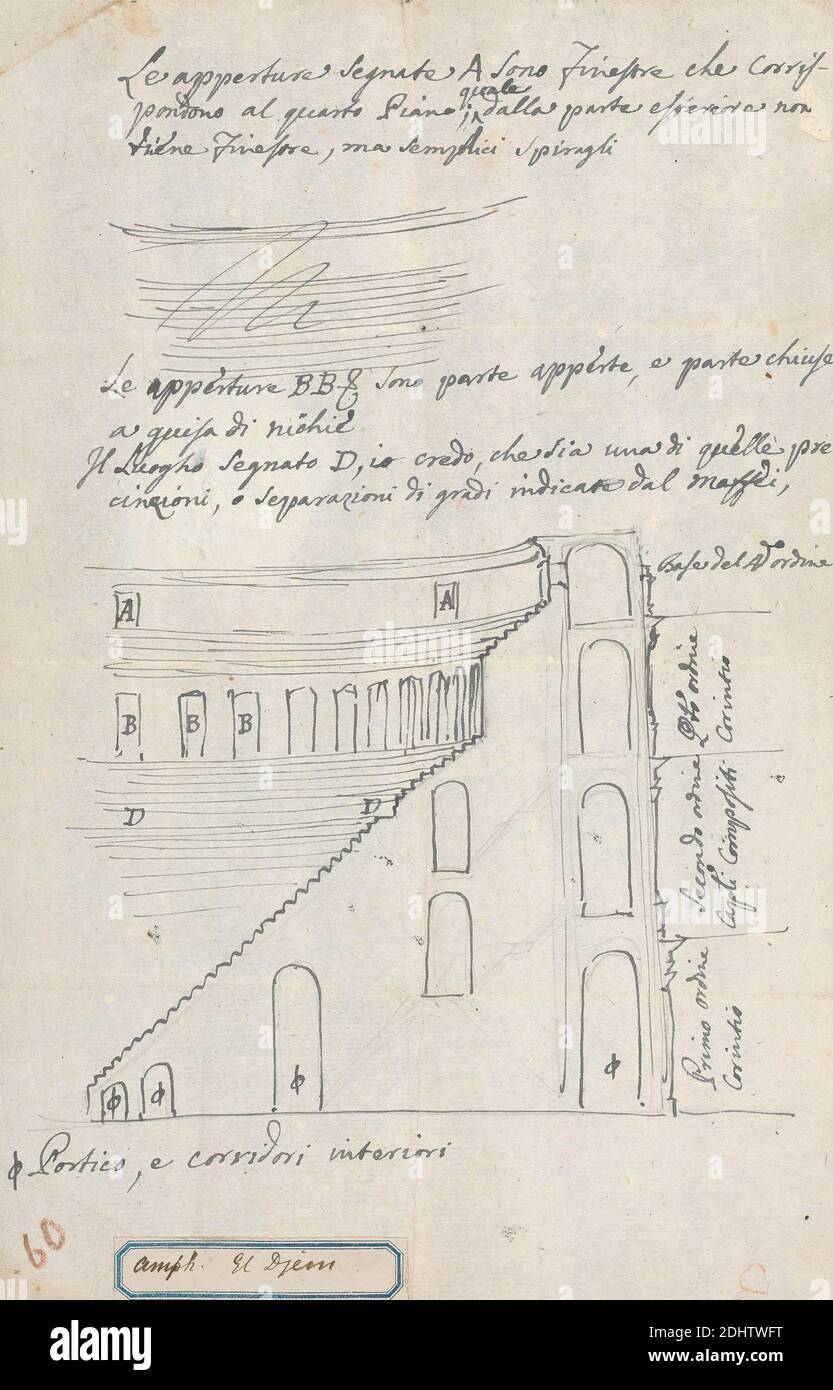 Le apperture segnate A sono Finestre che Corris-
pondono al quarto Piano; quale dalla parte esteriore non
tiene Finestre, ma semplici spiragli
Le apperture BB& sono parte apperte, e parte chiuse
a guisa di nichie
Il Luogho segnato D, io credo, che sia una di quelle pre
cinzioni, o separazioni di gradi indicate dal Maffei,
Base del 4º ordine
A
A
B
B
B
D
D
ordine
Corintio
Secondo ordine
Compositi
Primo ordine
Corintio
ϕ
ϕ
ϕ
ϕ
ϕ Portico, e corridori interiori
60
amph. El Djem
alamy
Image ID: 2DHTWFT
www.alamy.com